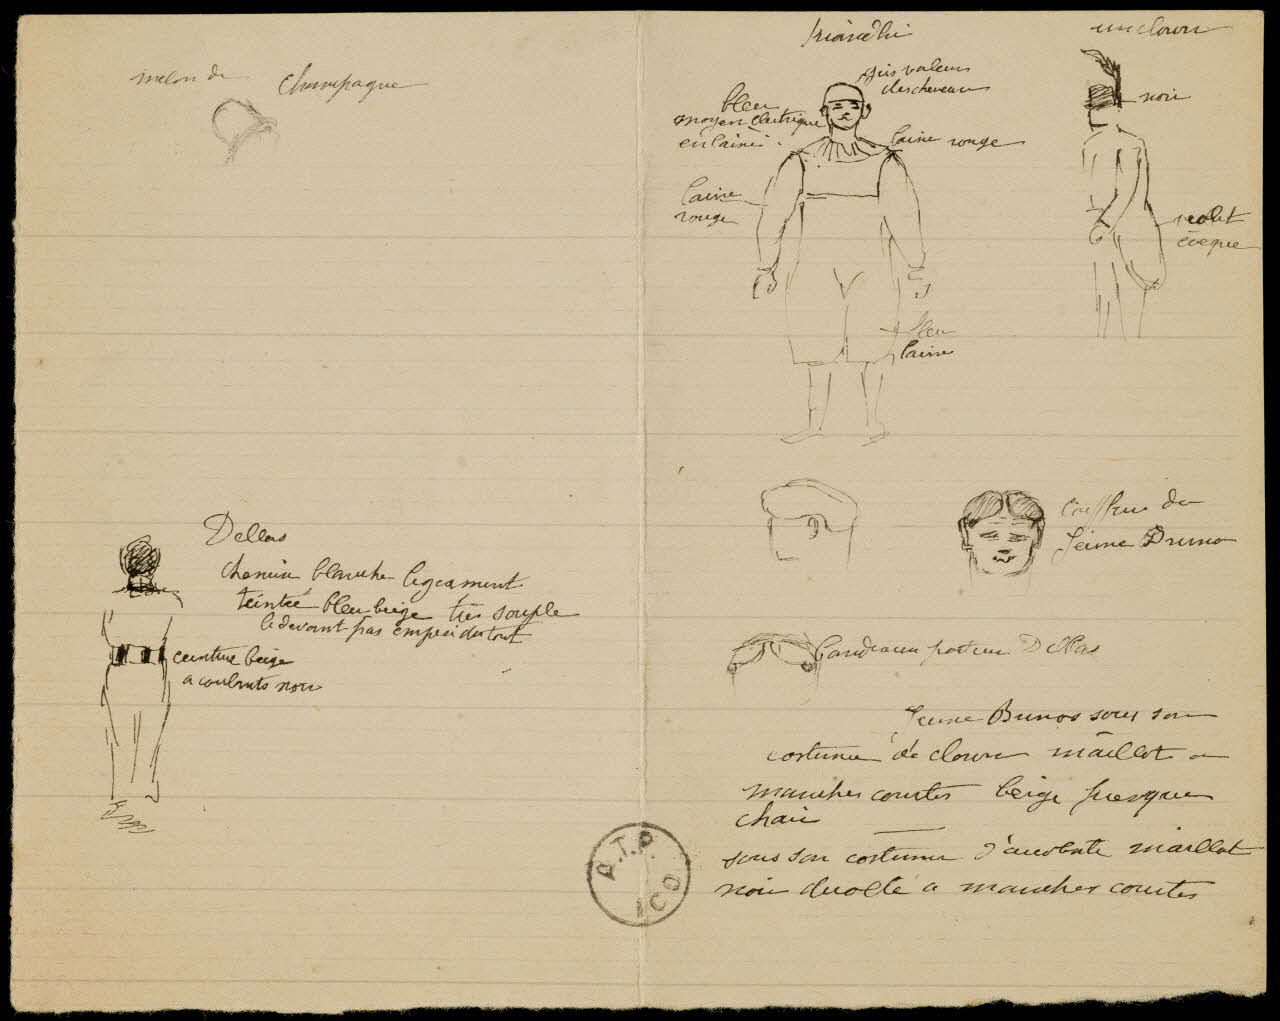 melon de Champagne
un clown
gris valeurs
des cheveux
bleu
moyen électrique
en laine
laine rouge
noir
laine
rouge
violet
évêque
bleu
laine
Coiffure du
Jeune Bruno
Dellas
chemise blanche legerement
teintée bleu beige très souple
le devant pas empesé du tout
ceinture beige
a coulants noir
Bandeaux postim Dellas
Jeune Brunos sous son
costume de clown maillot a
manches courtes beige presque
chair
sous son costume d'acrobate maillot
noir decolté a manches courtes
A.T.P.
ICO